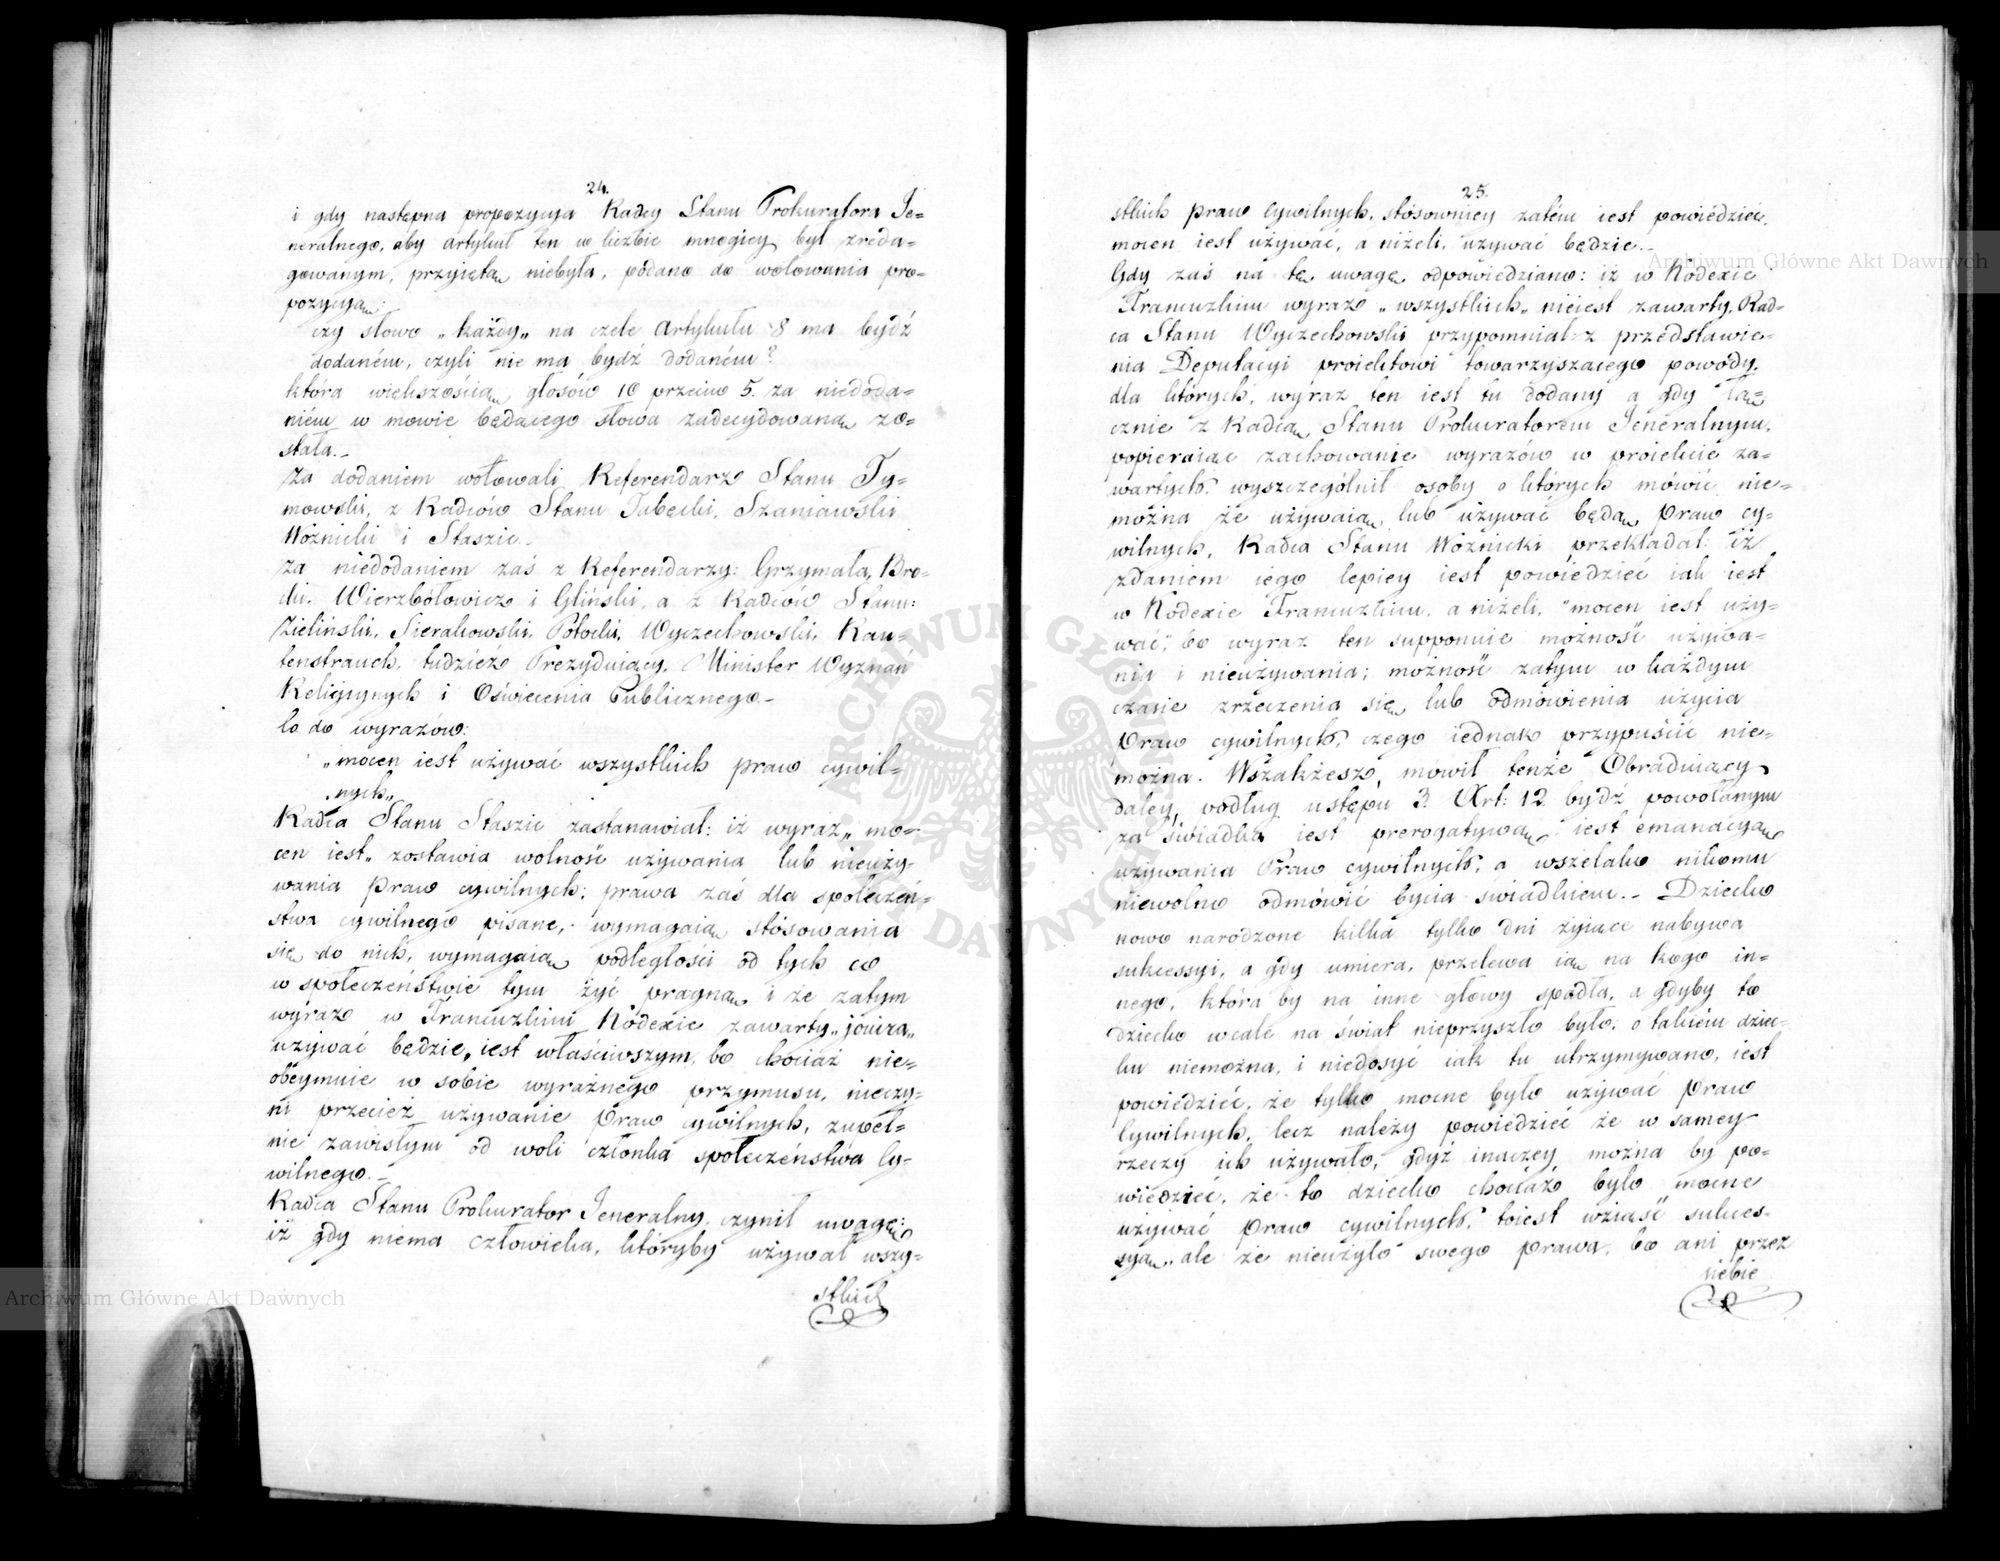 24.
i gdy następna propozycyia Radcy Stanu Prokuratora Je=
neralnego, aby artykuł ten w liczbie mnogiey był zreda=
gowanym, przyiętą niebyła, podano do wotowania pro=
pozycyią:
czy słowo „każdy„ na czele Artykułu 8 ma bydź
dodaném, czyli nie ma bydź dodaném?
która większością głosów 10 przeciw 5. za niedoda=
niém w mowie będącego słowa zadecydowaną zo=
stała._
Za dodaniem wotowali Referendarz Stanu Ty=
mowski, z Radców Stanu Tubęcki, Szaniawski
Woźnicki i Staszic._
Za niedodaniem zaś z Referendarzy: Grzymała, Bro=
cki, Wierzbołowicz i Gliński, a z Radców Stanu:
Zieliński, Sierakowski, Potocki, Wyczechowski, Kau=
tenstrauch, tudzież Prezyduiący, Minister Wyznań
Religiynych i Oświecenia Publicznego._
Co do wyrazów:
„mocen iest używać wszystkich praw cywil=
nych„
Radca Stanu Staszic zastanawiał: iż wyraz „mo=
cen iest„ zostawia wolność używania lub nieuży=
wania Praw cywilnych; prawa zaś dla społeczeń=
stwa cywilnego pisane, wymagaią stósowania
się do nich, wymagaią podległości od tych co
w społeczeństwie tym żyć pragną i że zatym
wyraz w Francuzkim Kodexie zawarty „jouira„
używać będzie, iest właściwszym, bo chociaż nie=
obeymuie w sobie wyraźnego przymusu, nieczy=
ni przecież używanie Praw cywilnych, zupeł=
nie zawisłym od woli członka społeczeństwa Cy=
wilnego._
Radca Stanu Prokurator Jeneralny, czynił uwagę:
iż gdy niema człowieka, któryby używał wszy=
stkich
25.
stkich praw cywilnych, stósowniey zatém iest powiédzieć,
mocen iest używać, a niżeli, używać będzie._
Gdy zaś na tę uwagę odpowiedziano: iż w Kodexie
Francuzkim wyraz „wszystkich„ nieiest zawarty, Rad=
ca Stanu Wyczechowski przypomniał z przedstawie=
nia Deputacyi proiektowi towarzyszącego powody,
dla których, wyraz ten iest tu dodany a gdy łą=
cznie z Radcą Stanu Prokuratorem Jeneralnym,
popieraiąc zachowanie wyrazów w proiekcie za=
wartych, wyszczególnił osoby o których mówić nie=
można że używaią lub używać będą Praw cy=
wilnych, Radca Stanu Woźnicki przekładał: iż
zdaniem iego lepiey iest powiedzieć iak iest
w Kodexie Francuzkim, a niżeli, "mocen iest uży=
wać", bo wyraz ten supponuie możność używa=
nia i nieużywania; możność zatym w każdym
czasie zrzeczenia się lub odmówienia użycia
Praw cywilnych, czego iednak przypuścić nie=
można. Wszakżesz, mówił tenże Obraduiący
daley, podług ustępu 3. Art: 12. bydź powołanym
za świadka iest prerogatywą, iest emanacyą
używania Praw cywilnych, a wszelako nikomu
niewolno odmówić bycia świadkiem._ Dziecko
nowo narodzone kilka tylko dni żyiące nabywa
sukcessyi, a gdy umiera, przelewa ią na kogo in=
nego, która by na inne głowy spadła, a gdyby to
dziecko wcale na świat nieprzyszło było; o takiém dziec=
ku niemożna, i niedosyć iak tu utrzymywano, iest
powiedzieć, że tylko mocne było używać Praw
Cywilnych, lecz należy powiédzieć że w samey
rzeczy ich używało, gdyż inaczey można by po=
wiedzieć, że to dziecko chociaż było mocne
używać Praw cywilnych, toiest wziąść sukces=
syą, ale że nieużyło swego prawa, bo ani przez
siebie